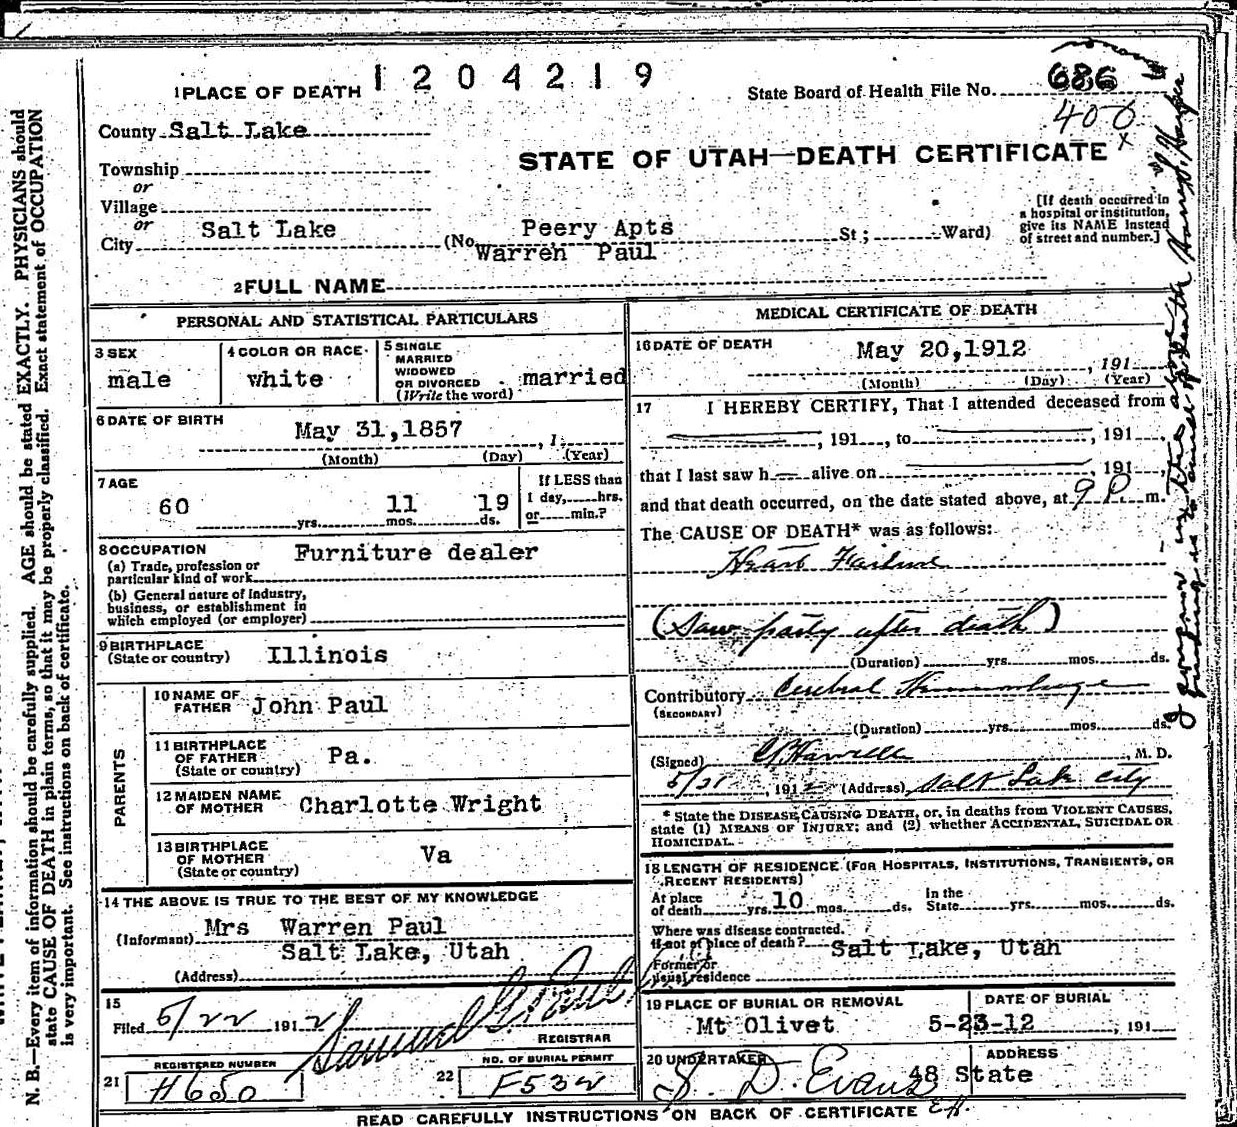 1204219
1 PLACE OF DEATH
State Board of Health File No. 686
400
x
County Salt Lake
STATE OF UTAH—DEATH CERTIFICATE
Township
or
Village
or
City Salt Lake (No. Peery Apts St; Ward)
[If death occurred in
a hospital or institution,
give its NAME instead
of street and number.]
Warren Paul
2 FULL NAME
PERSONAL AND STATISTICAL PARTICULARS
3 SEX
male
4 COLOR OR RACE
white
5 SINGLE
MARRIED
WIDOWED
OR DIVORCED
(Write the word)
married
6 DATE OF BIRTH
May 31,1857 , 1
(Month) (Day) (Year)
7 AGE
60 yrs. 11 mos. 19 ds.
If LESS than
1 day, hrs.
or min.?
8 OCCUPATION
Furniture dealer
(a) Trade, profession or
particular kind of work
(b) General nature of Industry,
business, or establishment in
which employed (or employer)
9 BIRTHPLACE
(State or country) Illinois
PARENTS
10 NAME OF
FATHER John Paul
11 BIRTHPLACE
OF FATHER
(State or country) Pa.
12 MAIDEN NAME
OF MOTHER Charlotte Wright
13 BIRTHPLACE
OF MOTHER
(State or country) Va
14 THE ABOVE IS TRUE TO THE BEST OF MY KNOWLEDGE
(Informant) Mrs Warren Paul
Salt Lake, Utah
(Address)
15
Filed 5/22 1912 Samuel G. Paul
REGISTRAR
21 REGISTERED NUMBER
H650
22 NO. OF BURIAL PERMIT
F532
MEDICAL CERTIFICATE OF DEATH
16 DATE OF DEATH May 20,1912
, 191
(Month) (Day) (Year)
17 I HEREBY CERTIFY, That I attended deceased from
, 191 , to , 191
that I last saw h alive on , 191
and that death occurred, on the date stated above, at 9 P. m.
The CAUSE OF DEATH* was as follows:
Heart Failure
(Saw party after death)
(Duration) yrs. mos. ds.
Contributory Cerebral Hemorrhage
(SECONDARY)
(Duration) yrs. mos. ds.
(Signed) M. D.
5/21 , 1912 (Address) Salt Lake City
* State the DISEASE CAUSING DEATH, or, in deaths from VIOLENT CAUSES,
state (1) MEANS OF INJURY; and (2) whether ACCIDENTAL, SUICIDAL OR
HOMICIDAL.
18 LENGTH OF RESIDENCE (FOR HOSPITALS, INSTITUTIONS, TRANSIENTS, OR
RECENT RESIDENTS)
At place
of death yrs. 10 mos. ds.
In the
State yrs. mos. ds.
Where was disease contracted.
if not of place of death? Salt Lake, Utah
Former or
usual residence
19 PLACE OF BURIAL OR REMOVAL
Mt Olivet
DATE OF BURIAL
5-23-12 , 191
20 UNDERTAKER
S. D. Evans
ADDRESS
48 State
READ CAREFULLY INSTRUCTIONS ON BACK OF CERTIFICATE
N. B.—Every item of information should be carefully supplied. AGE should be stated EXACTLY. PHYSICIANS should
state CAUSE OF DEATH in plain terms, so that it may be properly classified. Exact statement of OCCUPATION
is very important. See instructions on back of certificate.